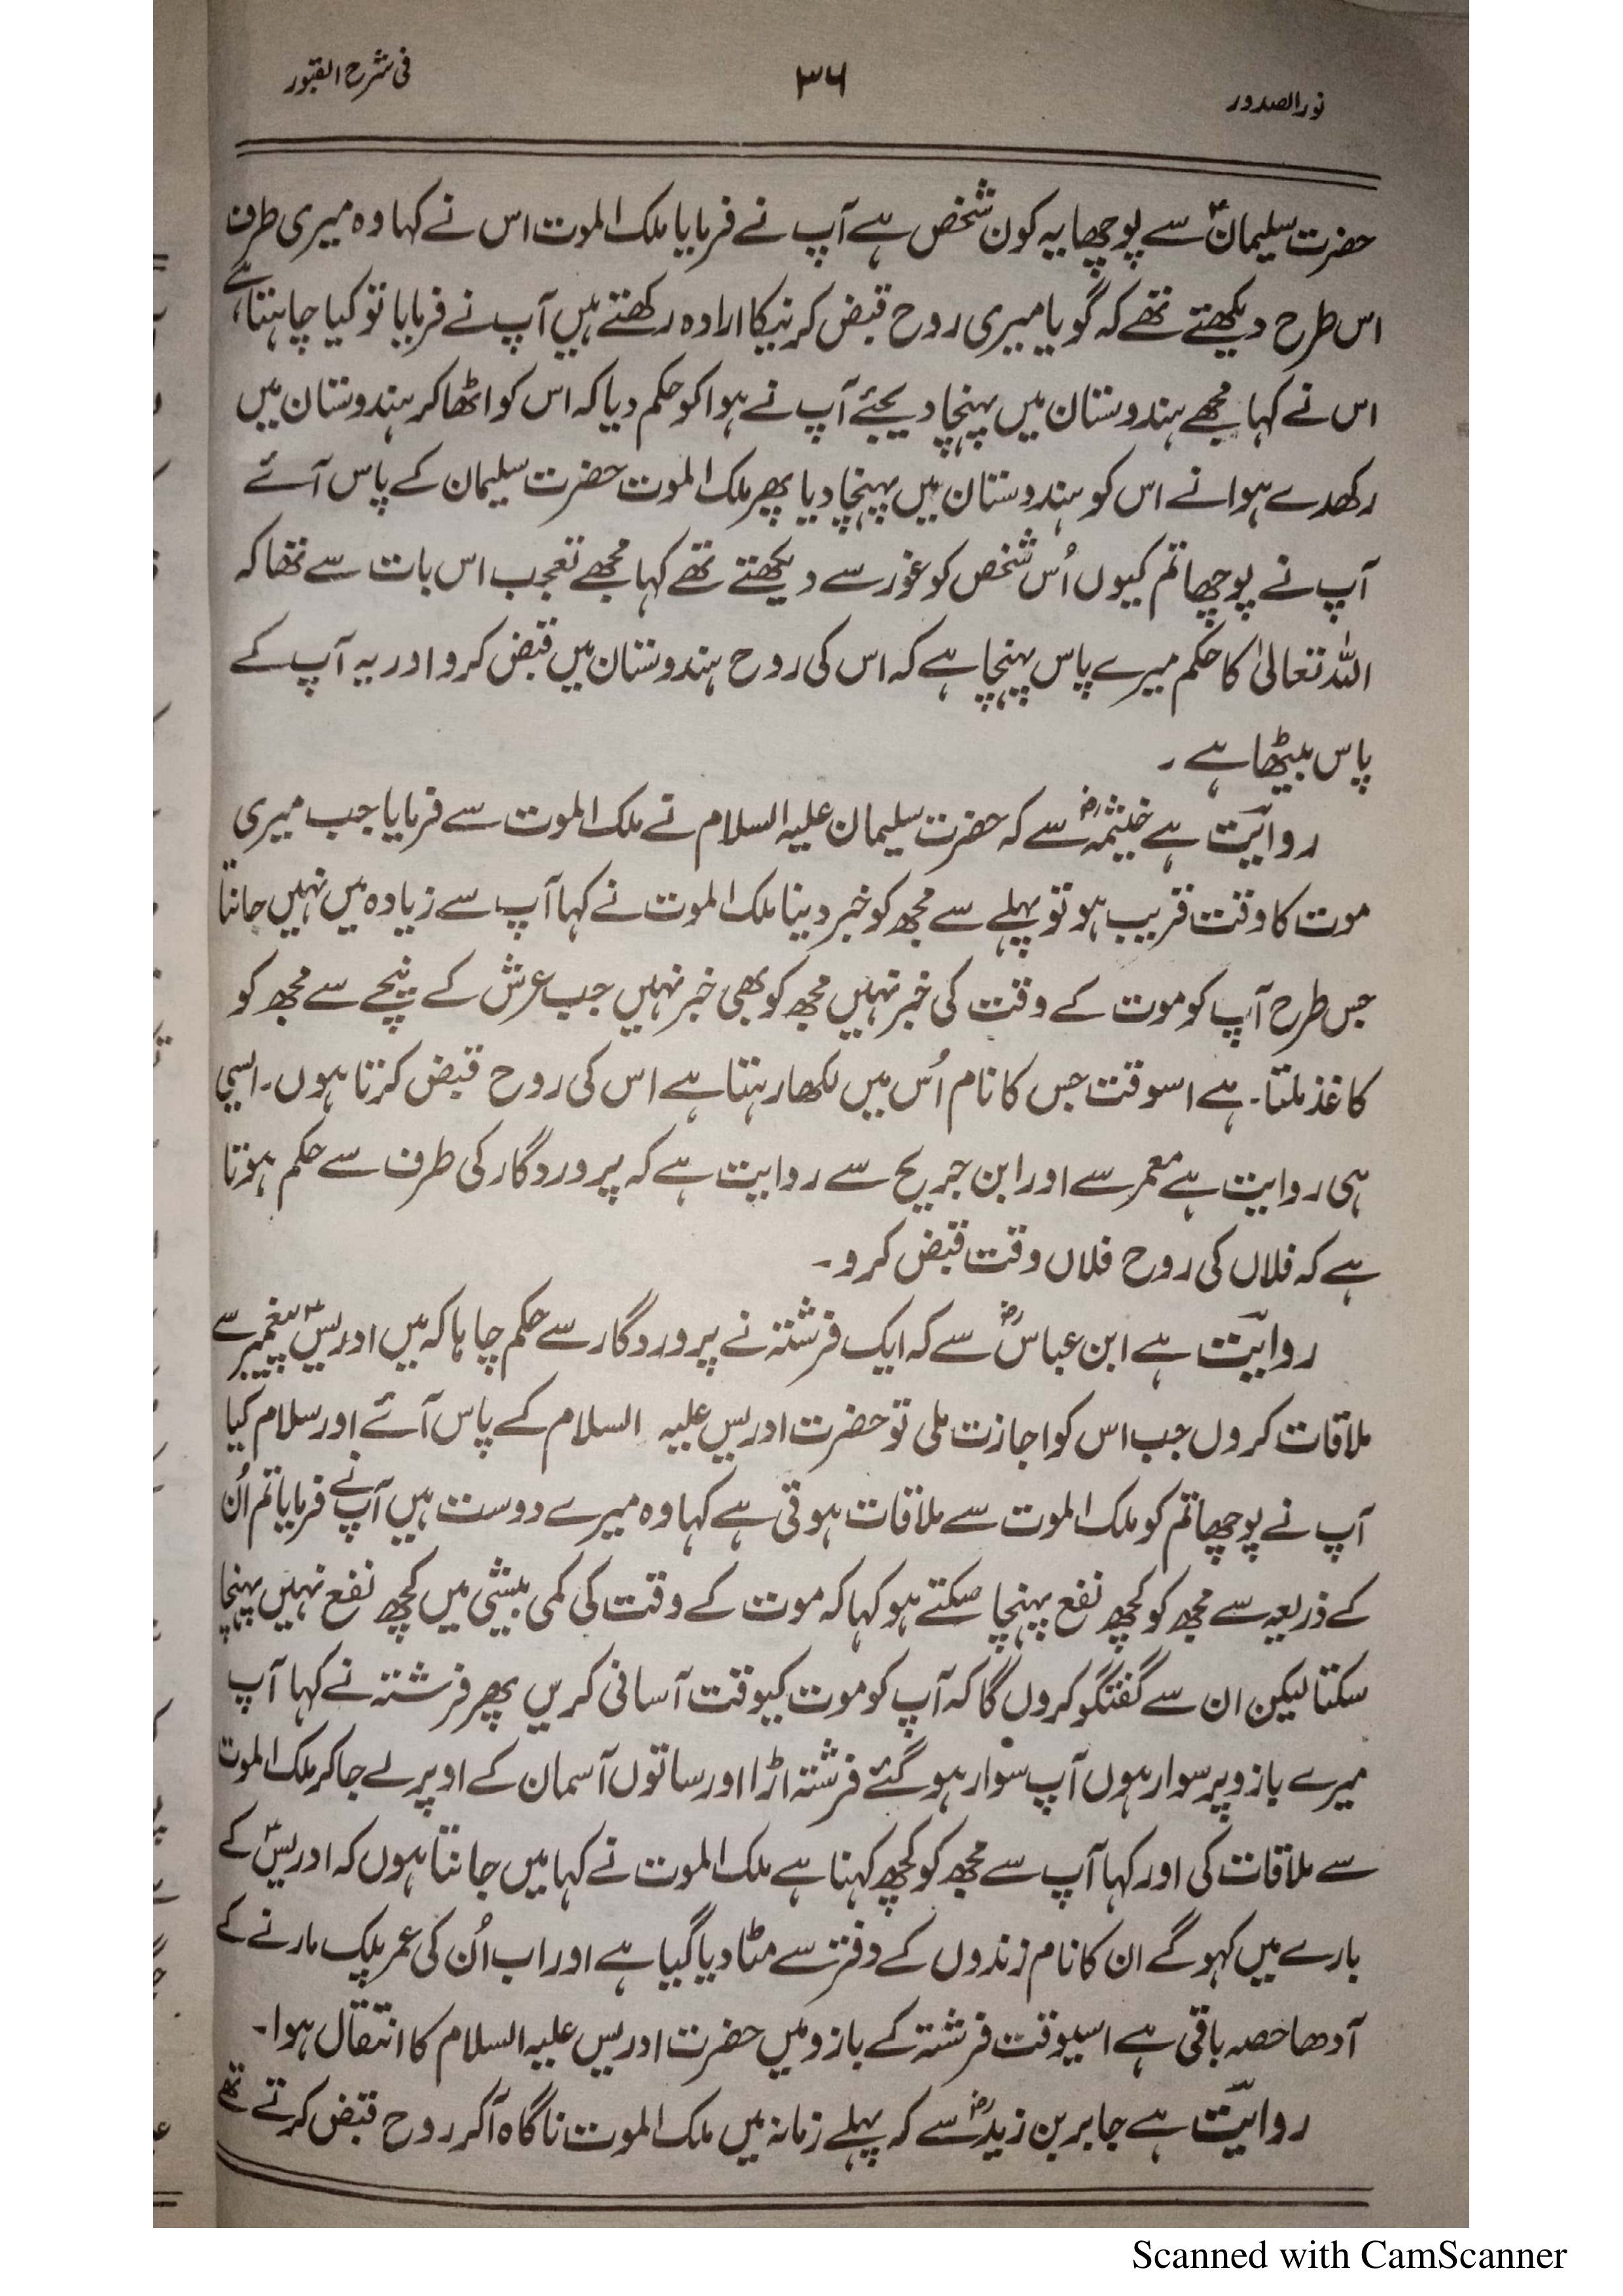 نور الصدور
۳۶
فی شرح القبور
حضرت سلیمانؑ سے پوچھا یہ کون شخص ہے آپ نے فرمایا ملک الموت اس نے کہا وہ میری طرف
اس طرح دیکھتے تھے کہ گویا میری روح قبض کرنیکا ارادہ رکھتے ہیں آپ نے فرمایا تو کیا چاہتا ہے
اس نے کہا مجھے ہندوستان میں پہنچا دیجئے آپ نے ہوا کو حکم دیا کہ اس کو اٹھا کر ہندوستان میں
رکھدے ہوا نے اس کو ہندوستان میں پہنچا دیا پھر ملک الموت حضرت سلیمان کے پاس آئے
آپ نے پوچھا تم کیوں اُس شخص کو غور سے دیکھتے تھے کہا مجھے تعجب اس بات سے تھا کہ
اللہ تعالیٰ کا حکم میرے پاس پہنچا ہے کہ اس کی روح ہندوستان میں قبض کرو اور یہ آپ کے
پاس بیٹھا ہے ۔
روایت ہے خیثمہؓ سے کہ حضرت سلیمان علیہ السلام نے ملک الموت سے فرمایا جب میری
موت کا وقت قریب ہو تو پہلے سے مجھ کو خبر دینا ملک الموت نے کہا آپ سے زیادہ میں نہیں جانتا
جس طرح آپ کو موت کے وقت کی خبر نہیں مجھ کو بھی خبر نہیں جب عرش کے نیچے سے مجھ کو
کاغذ ملتا۔ ہے اسوقت جس کا نام اُس میں لکھا رہتا ہے اس کی روح قبض کرتا ہوں۔ ایسی
ہی روایت ہے معمر سے اور ابن جریح سے روایت ہے کہ پروردگار کی طرف سے حکم ہوتا
ہے کہ فلاں کی روح فلاں وقت قبض کرو۔
روایت ہے ابن عباسؓ سے کہ ایک فرشتہ نے پروردگار سے حکم چاہا کہ میں ادریسؑ پیغمبر سے
ملاقات کروں جب اس کو اجازت ملی تو حضرت ادریس علیہ السلام کے پاس آئے اور سلام کیا
آپ نے پوچھا تم کو ملک الموت سے ملاقات ہوتی ہے کہا وہ میرے دوست ہیں آپ نے فرمایا تم اُن
کے ذریعہ سے مجھ کو کچھ نفع پہنچا سکتے ہو کہا کہ موت کے وقت کی کمی بیشی میں کچھ نفع نہیں پہنچا
سکتا لیکن ان سے گفتگو کروں گا کہ آپ کو موت کیوقت آسانی کریں پھر فرشتہ نے کہا آپ
میرے بازو پر سوار ہوں آپ سوار ہو گئے فرشتہ اڑا اور ساتوں آسمان کے اوپر لے جا کر ملک الموت
سے ملاقات کی اور کہا آپ سے مجھ کو کچھ کہنا ہے ملک الموت نے کہا میں جانتا ہوں کہ ادریسؑ کے
بارے میں کہو گے ان کا نام زندوں کے دفتر سے مٹا دیا گیا ہے اور اب اُن کی عمر پلک مارنے کے
آدھا حصہ باقی ہے اسیوقت فرشتہ کے بازو میں حضرت ادریس علیہ السلام کا انتقال ہوا۔
روایت ہے جابر بن زیدؓ سے کہ پہلے زمانہ میں ملک الموت ناگاہ آکر روح قبض کرتے تھے
Scanned with CamScanner